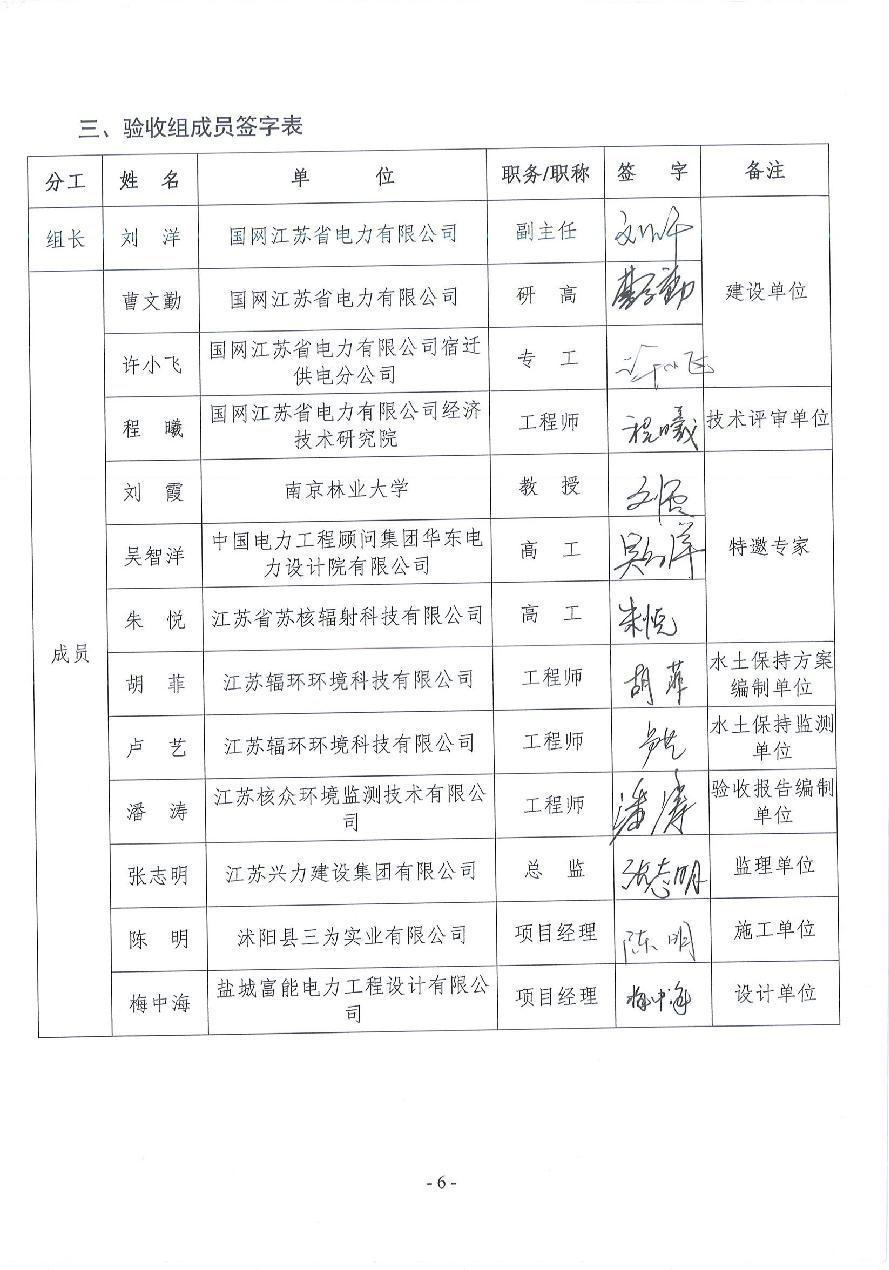 三、验收组成员签字表
分工 姓 名 单 位 职务/职称 签 字 备注
组长 刘 洋 国网江苏省电力有限公司 副主任 刘洋
建设单位
成员
曹文勤 国网江苏省电力有限公司 研 高 曹文勤
许小飞 国网江苏省电力有限公司宿迁
供电分公司 专 工 许小飞
程 曦 国网江苏省电力有限公司经济
技术研究院 工程师 程曦 技术评审单位
刘 霞 南京林业大学 教 授 刘霞
特邀专家
吴智洋 中国电力工程顾问集团华东电
力设计院有限公司 高 工 吴智洋
朱 悦 江苏省苏核辐射科技有限公司 高 工 朱悦
胡 菲 江苏辐环环境科技有限公司 工程师 胡菲 水土保持方案
编制单位
卢 艺 江苏辐环环境科技有限公司 工程师 卢艺 水土保持监测
单位
潘 涛 江苏核众环境监测技术有限公
司 工程师 潘涛 验收报告编制
单位
张志明 江苏兴力建设集团有限公司 总 监 张志明 监理单位
陈 明 沭阳县三为实业有限公司 项目经理 陈明 施工单位
梅中海 盐城富能电力工程设计有限公
司 项目经理 梅中海 设计单位
- 6 -